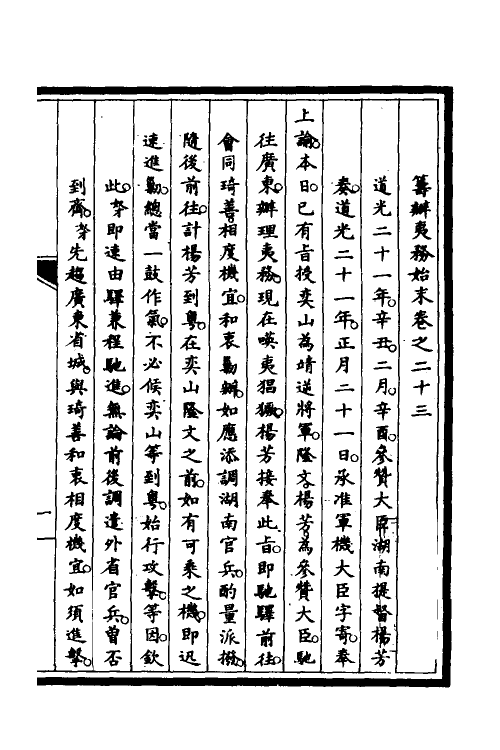 籌辦夷務始末卷之二十三
道光二十一年。辛丑。二月。辛酉。參贊大臣湖南提督楊芳
奏。道光二十一年。正月二十一日。承准軍機大臣字寄。奉
上諭。本日已有旨授奕山為靖逆將軍。隆文。楊芳。為參贊大臣。馳
往廣東。辦理夷務。現在暎夷猖獗。楊芳接奉此旨。即馳驛前往。
會同琦善。相度機宜。和衷勦辦。如應添調湖南官兵。酌量派撥。
隨後前往。計楊芳到粵。在奕山隆文之前。如有可乘之機。即迅
速進勦。總當一鼓作氣。不必候奕山等到粵。始行攻擊。等因。欽
此。芳即速由驛兼程馳進。無論前後調遣外省官兵。曾否
到齊。芳先趨廣東省城。與琦善和衷相度機宜。如須進擊。
一